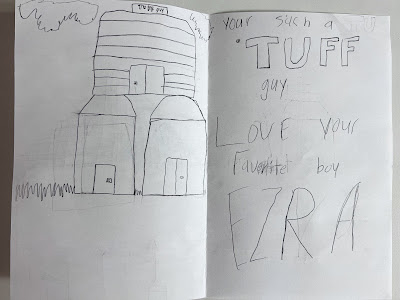 TUFF
your such a
TUFF
guy
LOVE your
Favorite boy
EZRA